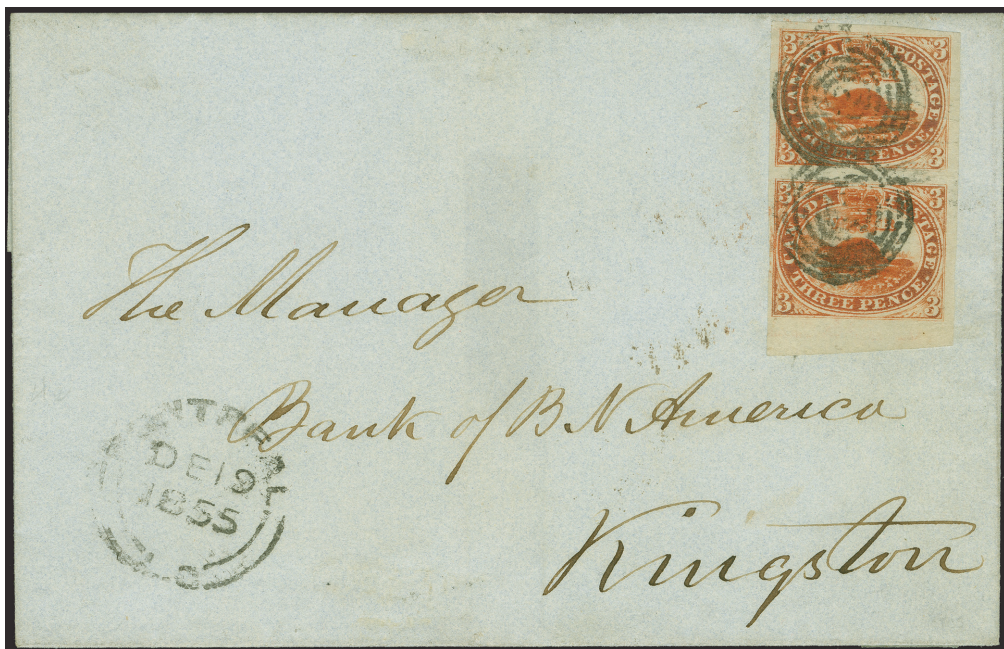 3 3
CANADA POSTAGE
PENCE.
3 3
3 3
CANADA POSTAGE
THREE PENCE.
3 3
The Manager
Bank of B N America
Kingston
MONTREAL
DE 19
1855
L.C